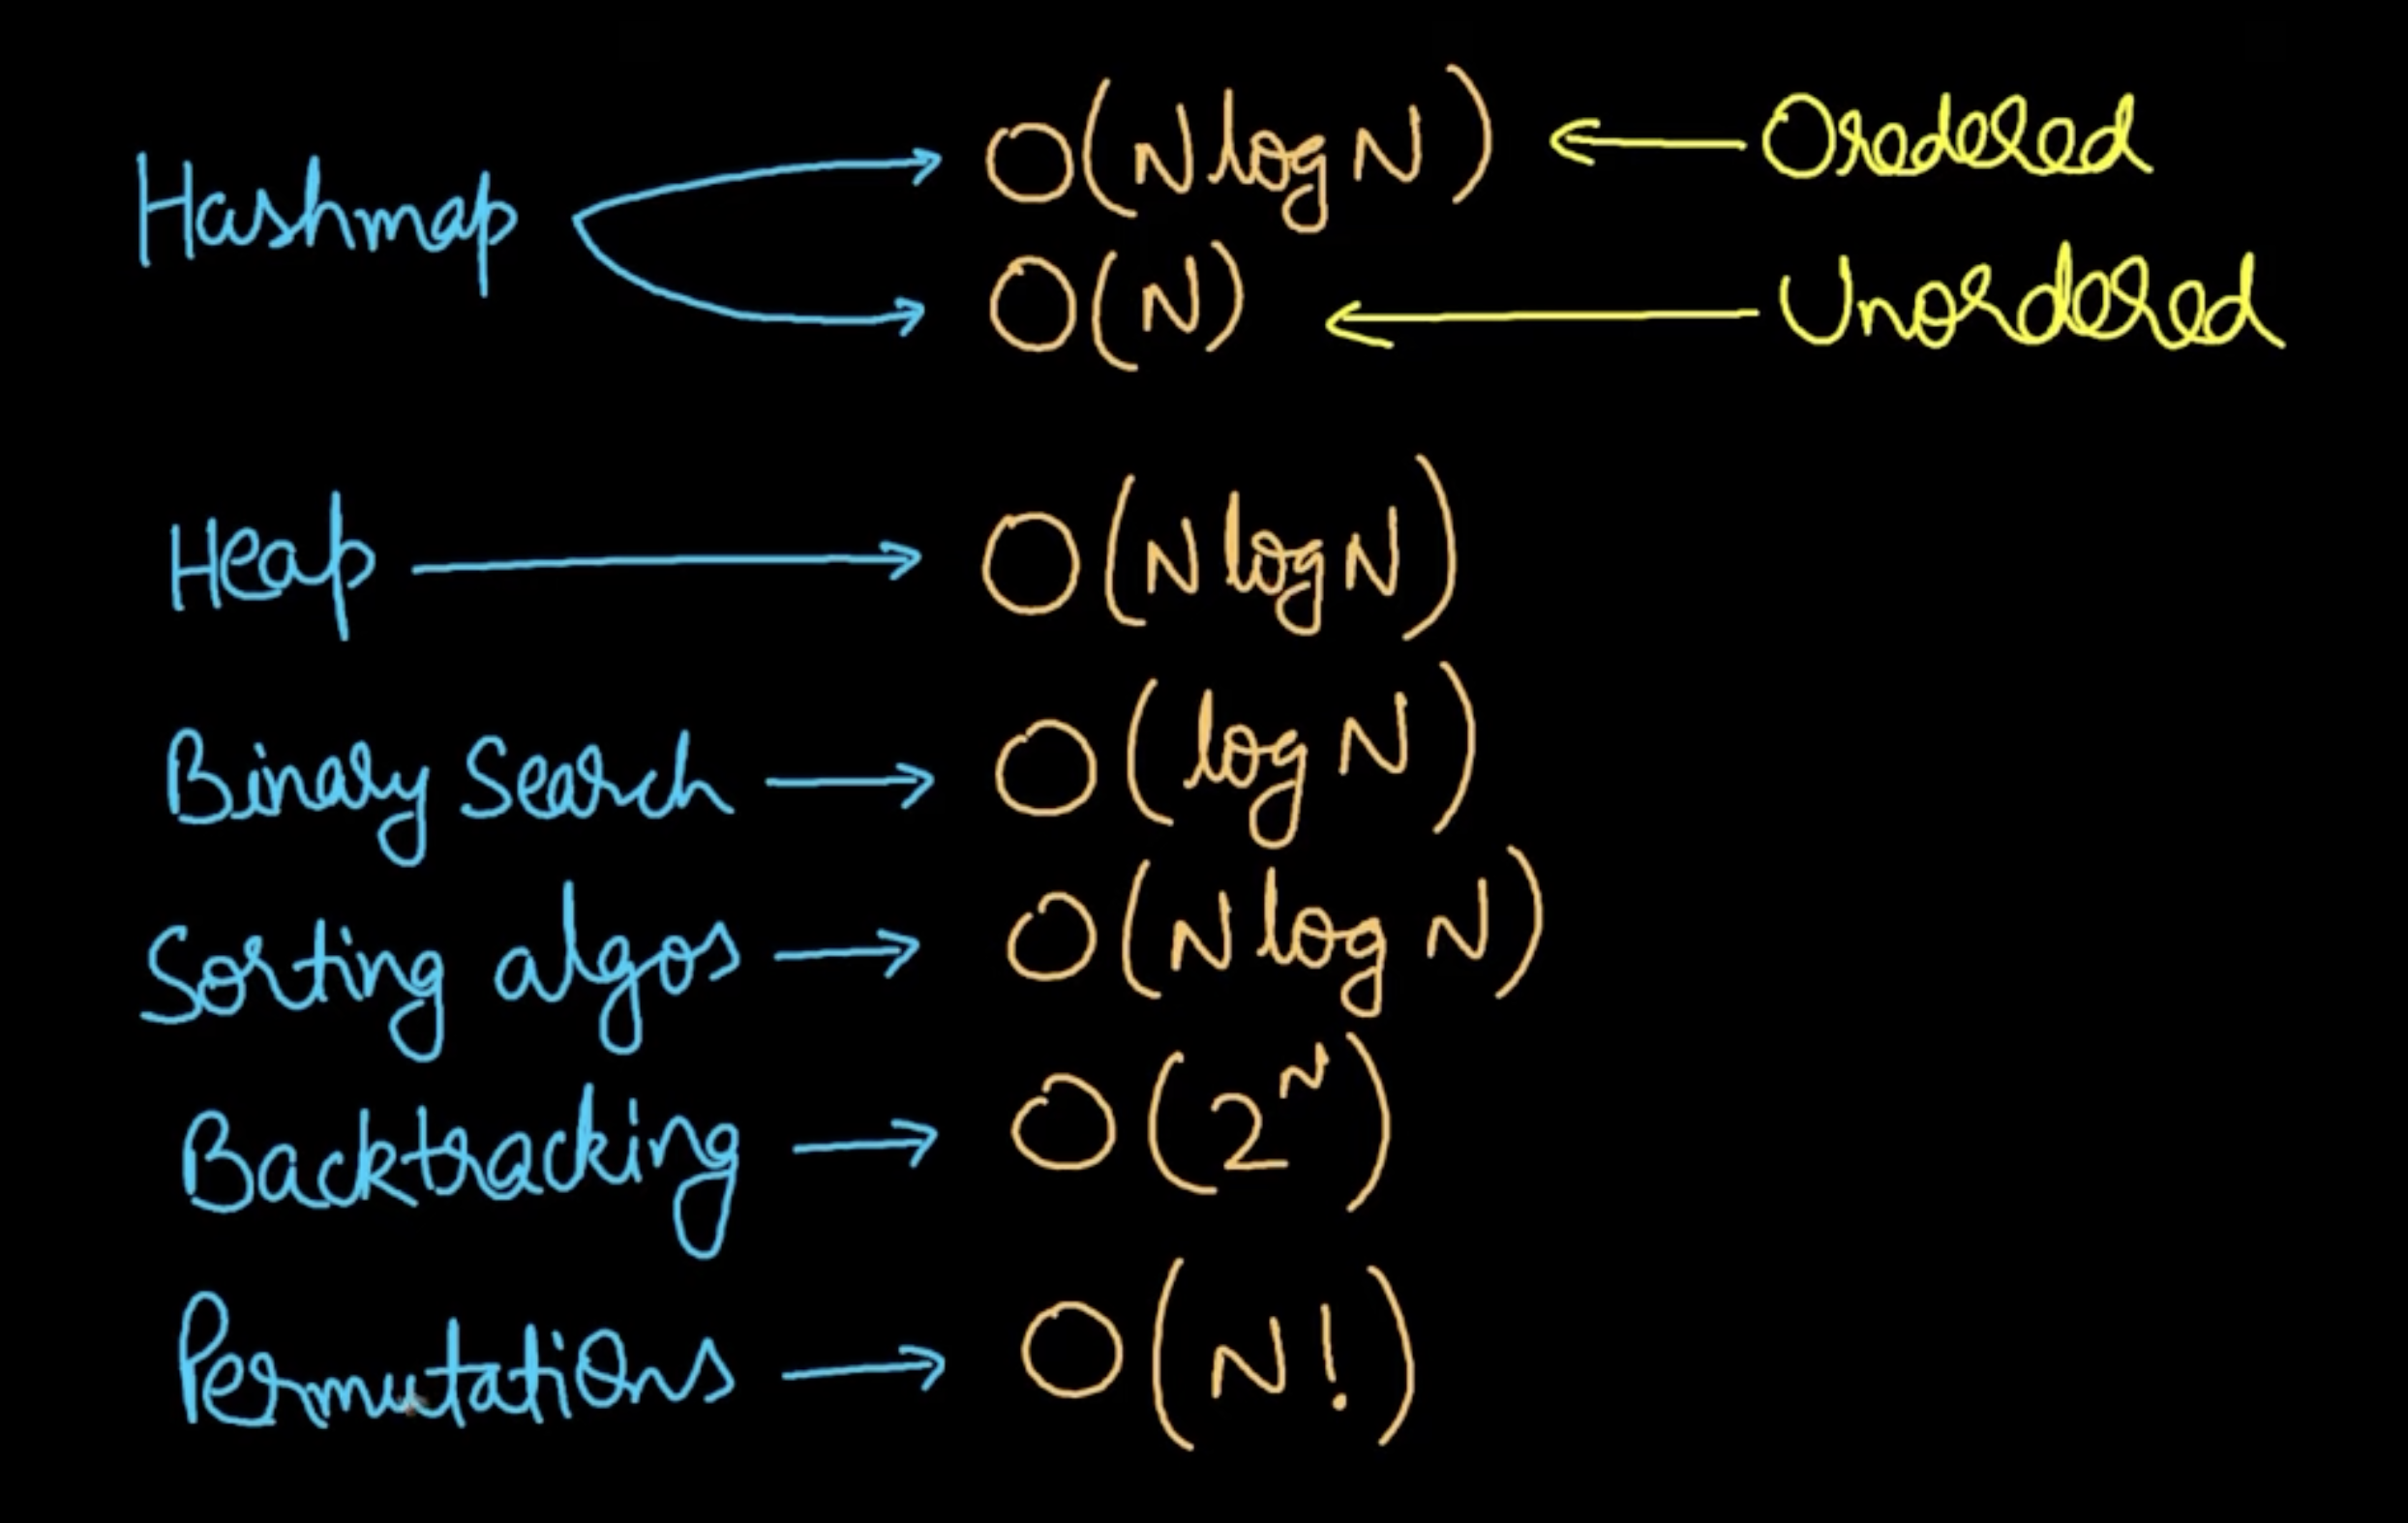 Hashmap → O(N log N) ← Oredered
→ O(N) ← Unordered
Heap → O(N log N)
Binary Search → O(log N)
Sorting algos → O(N log N)
Backtracking → O(2^N)
Permutations → O(N!)